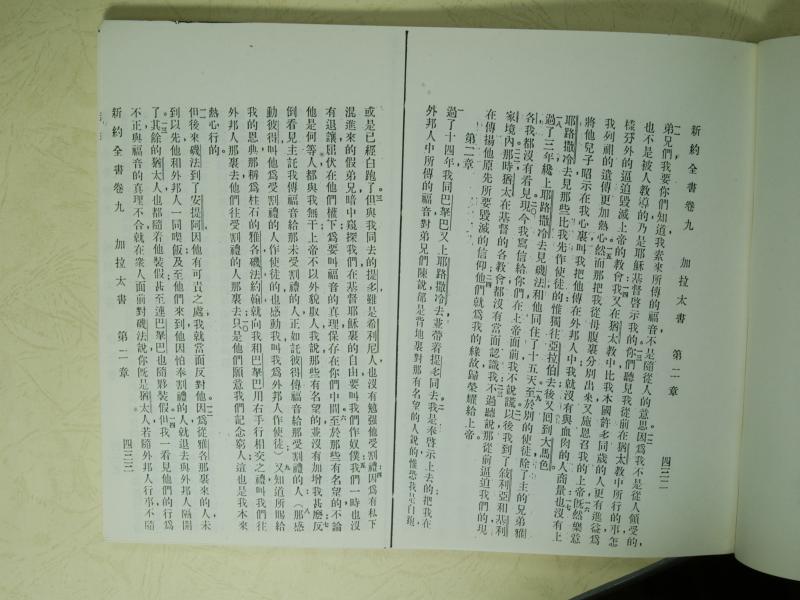 新約全書卷九 加拉太書 第二章 四三二
弟兄們我要你們知道我素來所傳的福音不是隨從人的意思因爲我不是從人領受的
也不是被人教導的乃是耶穌基督啓示我的你們聽見我從前在猶太教中所行的事怎
樣分外的逼迫毀滅上帝的教會我又在猶太教中比我本國許多同歲的人更有進益爲
我列祖的遺傳更加熱心然而那把我從母腹裏分別出來又施恩召我的上帝既然樂意
將他兒子啓示在我心裏叫我把他傳在外邦人中我就沒有與血肉的人商量也沒有上
耶路撒冷去見那些比我先作使徒的惟獨往亞拉伯去後又囘到大馬色
過了三年纔上耶路撒冷去見磯法和他同住了十五天至於別的使徒除了主的兄弟雅
各我都沒有看見現今我寫信給你們在上帝面前我不說謊以後我到了敘利亞和基利
家境內那時猶太在基督的各教會都沒有當面認識我不過聽說那從前逼迫我們的現
在傳揚他原先所要毀滅的信仰他們就爲我的緣故歸榮耀給上帝
第二章
過了十四年我同巴拏巴又上耶路撒冷去並帶着提多同去我是奉啓示上去的把我在
外邦人中所傳的福音對弟兄們陳說郤是背地裏對那有名望的人說的惟恐我是白跑
或是已經白跑了但與我同去的提多雖是希利尼人也沒有勉强他受割禮因爲有私下
混進來的假弟兄暗中窺探我們在基督耶穌裏的自由要叫我們作奴僕我們一時也沒
有退讓屈伏在他們權下爲要叫福音的真理保存在你們中間至於那些有名望的不論
他是何等人都與我無干上帝不以外貌取人我說那些有名望的並沒有加增我甚麼反
倒看見主託我傳福音給那未受割禮的人正如託彼得傳福音給那受割禮的人（那感
動彼得叫他爲受割禮的人作使徒的也感動我叫我爲外邦人作使徒）又知道所賜給
我的恩典那稱爲柱石的雅各磯法約翰就向我和巴拏巴用右手行相交之禮叫我們往
外邦人那裏去他們往受割禮的人那裏去只是他們願意我們記念窮人這也是我本來
熱心行的
但後來磯法到了安提阿因他有可責之處我就當面反對他因爲從雅各那裏來的人未
到以先他和外邦人一同喫飯及至他們來到他因怕奉割禮的人就退去與外邦人隔開
了其餘的猶太人也都隨着他裝假甚至連巴拏巴也隨夥裝假但我一看見他們的行爲
不正與福音的真理不合就在衆人面前對磯法說你既是猶太人若隨外邦人行事不隨
新約全書卷九 加拉太書 第二章 四三三